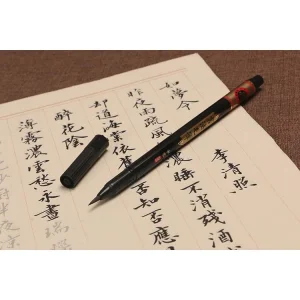 如夢令 李清照
昨夜雨疏風 濃睡不消殘酒
却道海棠依舊 否知否應
醉花陰
薄霧濃雲愁永晝 瑞